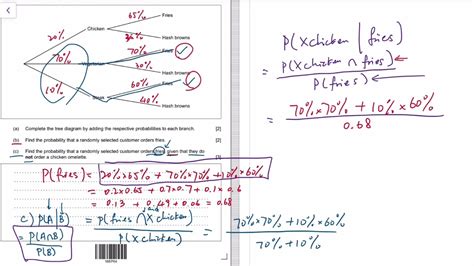 65%
Fries
Chicken
20%
35%
Hash browns
70%
Fries
70%
Vegetarian
30%
Hash browns
10%
60%
Fries
Steak
40%
Hash browns
(a) Complete the tree diagram by adding the respective probabilities to each branch. [2]
(b) Find the probability that a randomly selected customer orders fries. [2]
(c) Find the probability that a randomly selected customer orders fries, given that they do
not order a chicken omelette. [3]
P(fries) = 20%×65% + 70%×70% + 10%×60%
= 0.2×0.65 + 0.7×0.7 + 0.1×0.6
= 0.13 + 0.49 + 0.06 = 0.68
c) P(A|B) = P(fries ∩ X chicken) / P(X chicken) = 70%×70% + 10%×60% / 70% + 10%
= P(A∩B)
P(B)
P(X chicken | fries)
= P(X chicken ∩ fries)
P(fries)
= 70%×70% + 10%×60%
0.68